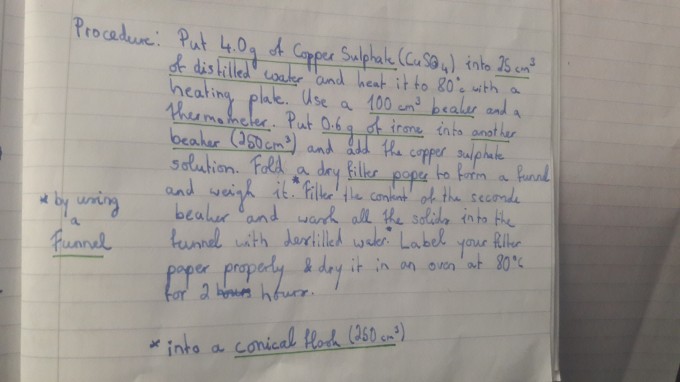 Procedure: Put 4.0g of Copper Sulphate (CuSO4) into 25 cm³
of distilled water and heat it to 80°c with a
heating plate. Use a 100 cm³ beaker and a
thermometer. Put 0.6g of irone into another
beaker (250cm³) and add the copper sulphate
solution. Fold a dry filter paper to form a funnel
and weigh it.* Filter the content of the seconde
* by using
a
Funnel
beaker and wash all the solids into the
funnel with destilled water.* Label your filter
paper properly & dry it in an oven at 80°C
for 2 hours hours.
* into a conical flask (250 cm³)